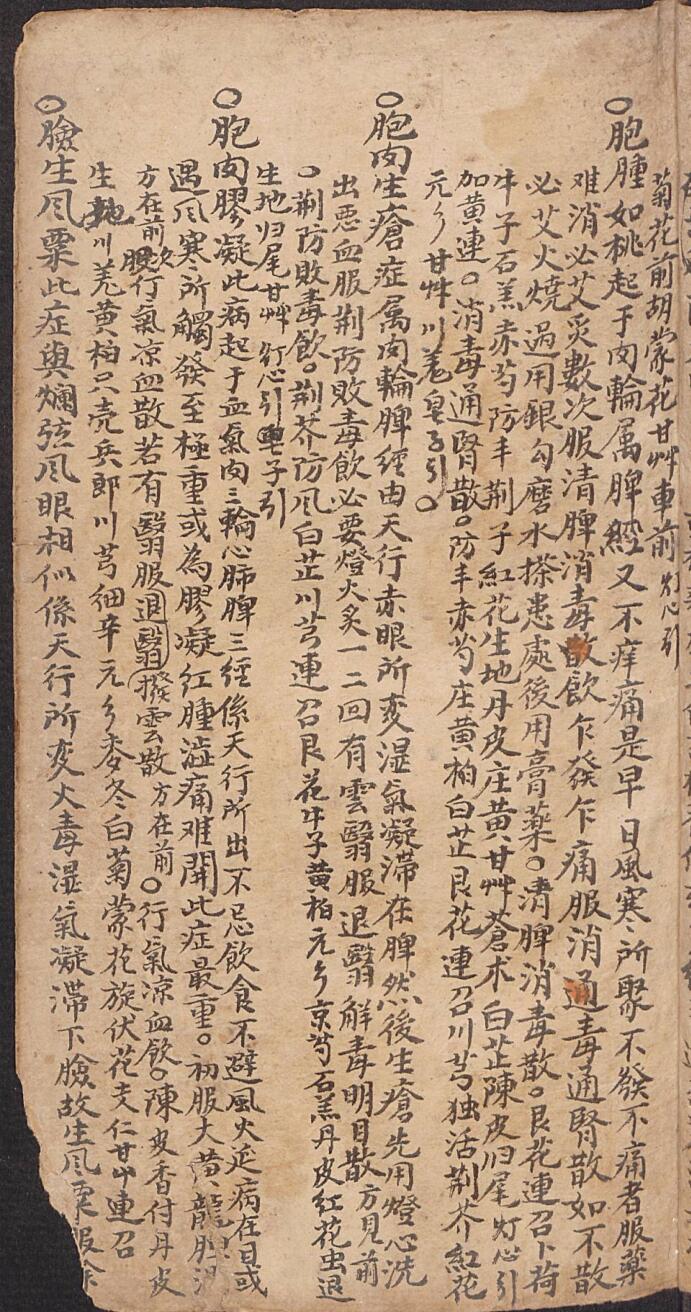 菊花前胡蒙花甘艸車前灯心引
○胞腫如桃起于肉輪属脾經又不痒痛是早日風寒所聚不發不痛者服藥
难消必艾炙數次服清脾消毒飲乍發乍痛服消通毒通腎散如不散
必艾火燒過用銀勾磨水搽患處後用膏藥○清脾消毒散○艮花連召卜荷
牛子石羔赤芍防丰荆子紅花生地丹皮庄黄甘艸蒼术白芷陳皮归尾灯心引
加黄連○消毒通腎散○防丰赤芍庄黄柏白芷艮花連召川芎独活荆芥紅花
元参甘艸川羗皂子引○
○胞肉生瘡症属肉輪脾經由天行赤眼所变湿氣凝滯在脾然後生瘡先用燈心洗
出惡血服荆防敗毒飲必要燈火炙一二回有雲翳服退翳觧毒明目散方見前
○荆防敗毒飲○荆芥防风白芷川芎連召艮花牛子黄柏元参京芍石羔丹皮紅花虫退
生地归尾甘艸灯心引車子引
○胞肉膠凝此病起于血氣肉三輪心肺脾三經係天行所出不忌飲食不避風火延病在目或
遇风寒所觸發至極重或為膠凝红腫澁痛难開此症最重○初服大黄龍胆
方在前後次行氣凉血散若有翳服退翳撥雲散方在前○行氣凉血飲○陳皮香付丹皮
生地川羗黄柏只壳兵郎川芎細辛元参麥冬白菊蒙花旋伏花支仁甘艸連召
○臉生风粟此症與爛弦风眼相似係天行所变火毒湿氣凝滯下臉故生风粟服